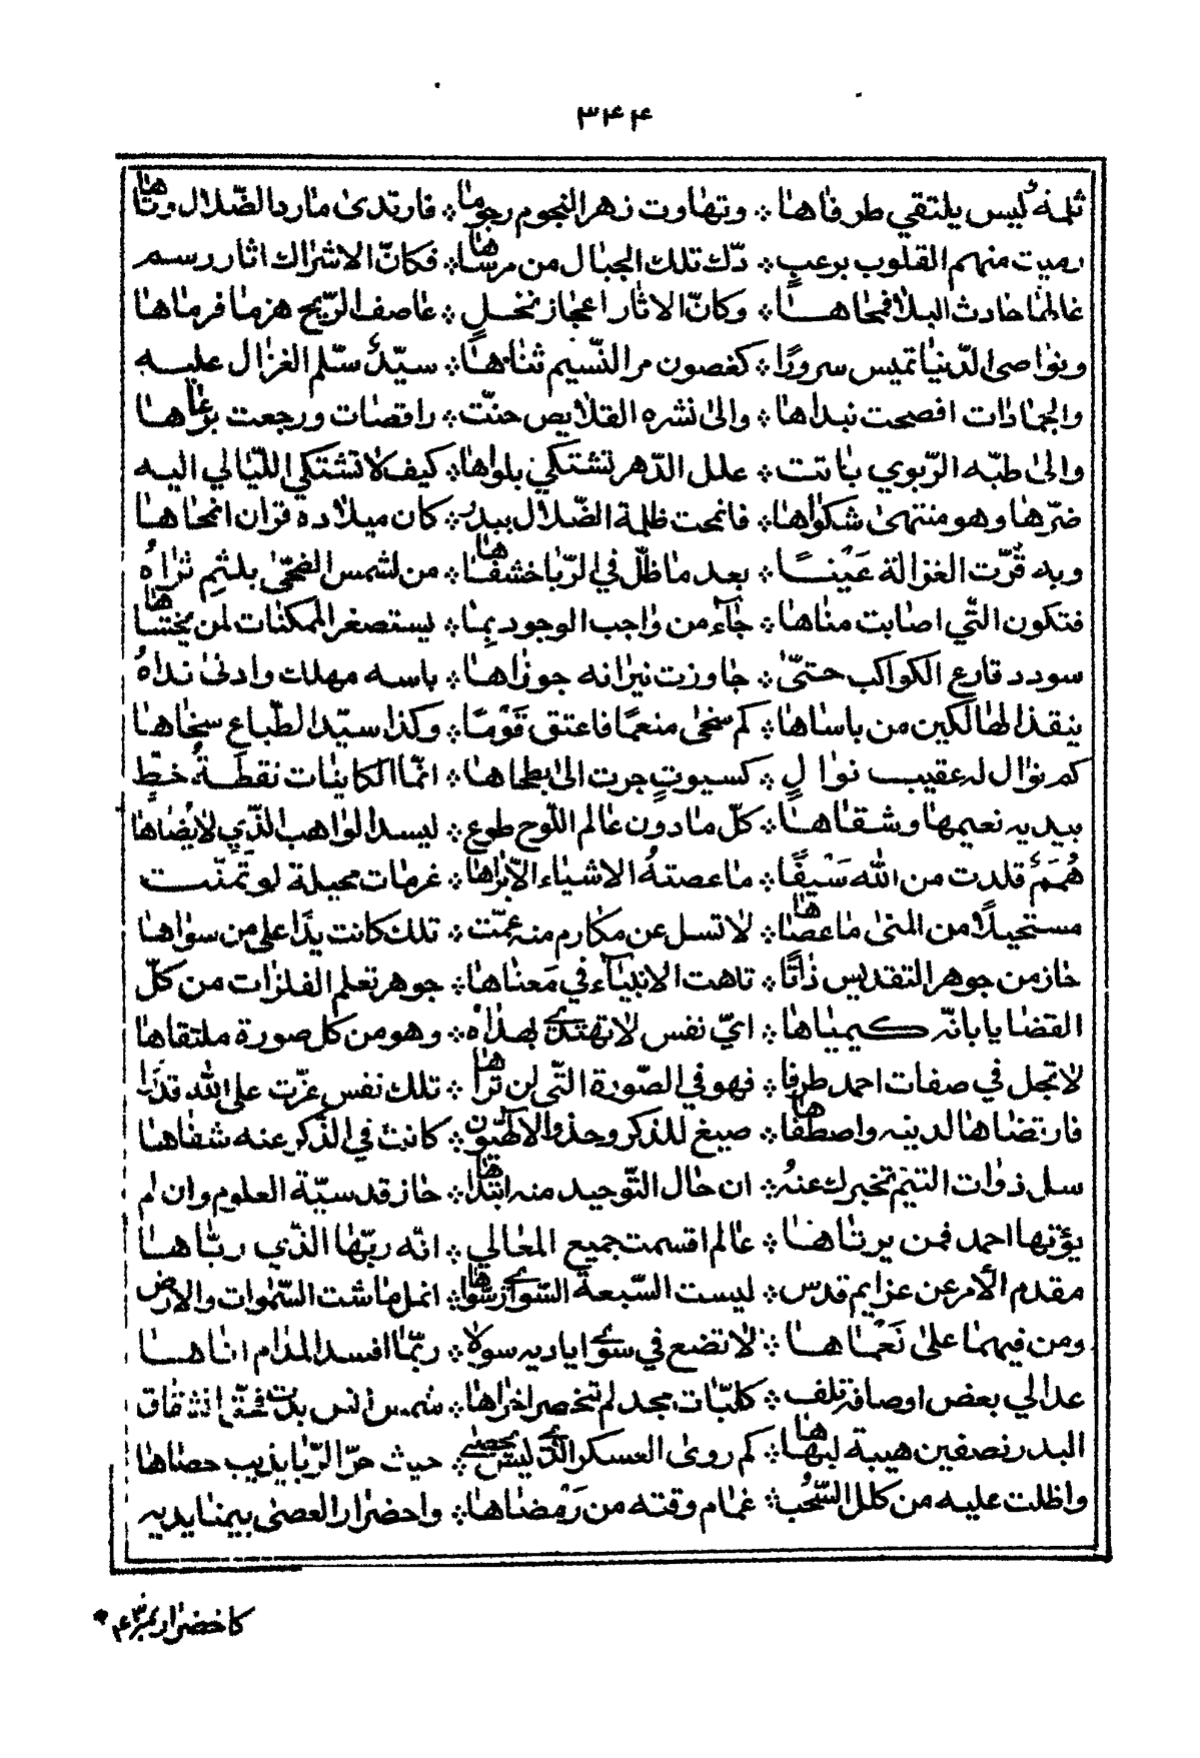 ٣٤٤
ثلمة ليس يلتقي طرفاها ❊ وتهاوت زهر النجوم رجوما ❊ فارتدى مارد الضّلال وتاها
رميت منهم القلوب برعب ❊ دكّ تلك الجبال من مرساها ❊ فكانّ الاشراك اثار رسم
غالها حادث البلا فمحاها ❊ وكانّ الاثار اعجاز نخل ❊ عاصف الرّيح هزها فرماها
ونواصى الدّنيا تميس سرورًا ❊ كغصون مر النّسيم ثناها ❊ سيّد سلّم الغزال عليه
والجمادات افصحت نبداها ❊ والى نشره القلايص حنّت ❊ راقصات ورجعت برغاها
والى طبّه الرّبوي باتت ❊ علل الدّهر تشتكي بلواها ❊ كيف لا تشتكي اللّيالي اليه
ضرّها وهو منتهى شكواها ❊ فانمحت ظلمة الضّلال ببدر ❊ كان ميلاده قران انمحاها
وبه قرّت الغزالة عَيْنًا ❊ بعد ما ظلّ في الرّبا خشفاها ❊ من لشمس الضّحى بلثم ثراهُ
فتكون التّي اصابت مناها ❊ جآء من واجب الوجود بِما ❊ يستصغر الممكنات لمن يخشاها
سودد قارع الكواكب حتىّ ❊ جاوزت نيرانه جوزاها ❊ باسه مهلك وادنى نداهُ
ينقذ الهالكين من باساها ❊ كم سخى منعمًا فاعتق قَوْمًا ❊ وكذا سيّد الطّباع سخاها
كم نوال له عقيب نوالٍ ❊ كسيوت جرت الى بطحاها ❊ انمّا الكاينات نقطة خطّ
بيديه نعيمها وشقاها ❊ كلّ ما دون عالم اللّوح طوع ❊ ليد الواهب الذّي لا يضاها
هُمَمٌ قلدت من الله سَيْفًا ❊ ما عصتهُ الاشياء الّا براها ❊ عزمات محيلة لو تمنّت
مستحيلًا من المنى ما عصاها ❊ لا تسل عن مكارم منه عمّت ❊ تلك كانت يدًا على من سواها
حاز من جوهر التقديس ذاتًا ❊ تاهت الانبيآء في مَعناها ❊ جوهر تعلم الفلزات من كلّ
القضايا بانّه كيمياها ❊ ايّ نفس لا تهتدي بهداه ❊ وهو من كل صورة ملتقاها
لا تجل في صفات احمد طرفا ❊ فهو في الصّورة التّي لن تراها ❊ تلك نفس عزّت على الله قدرا
فارتضاها لدينه واصطفاها ❊ صيغ للذكر وحده والالهيّون ❊ كانت في الذّكر عنه شفاها
سل ذوات التميّز تخبرك عنهُ ❊ ان حال التّوحيد منه ابتداها ❊ حاز قدسيّة العلوم وان لم
يؤتها احمد فمن يرتاها ❊ عالم اقسمت جميع المعالي ❊ انّه ربّها الذّي ربّاها
مقدم الأمر عن عزايم قدس ❊ ليست السّبعة السّوارى سواها ❊ انمل عاشت السّموات والارض
ومن فيهما على نَعْماها ❊ لا تضع في سوى اياديه سولا ❊ ربّما افسد المدام اناها
عد الي بعض اوصافه تلف ❊ كليّات مجد لم تنحصر اخراها ❊ شمس انس بدت فحقّ انشقاق
البدر نصفين هيبة لبهاها ❊ كم روى العسكر الذّي ليس يحصى ❊ حيث حرّ الرّبا يذيب حصاها
واظلت عليه من كلل السّحب ❊ غمام وقته من رَمْضاها ❊ واخضرار العصى بيمنا يديه
كاخضرار